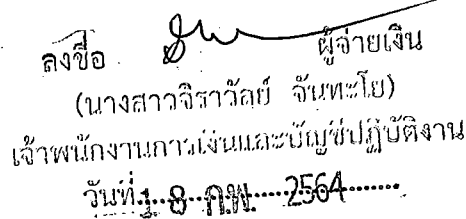 ลงชื่อ ผู้จ่ายเงิน
(นางสาวจิราวัลย์ จันทะโย)
เจ้าพนักงานการเงินและบัญชีปฏิบัติงาน
วันที่ 18 ก.พ. 2564